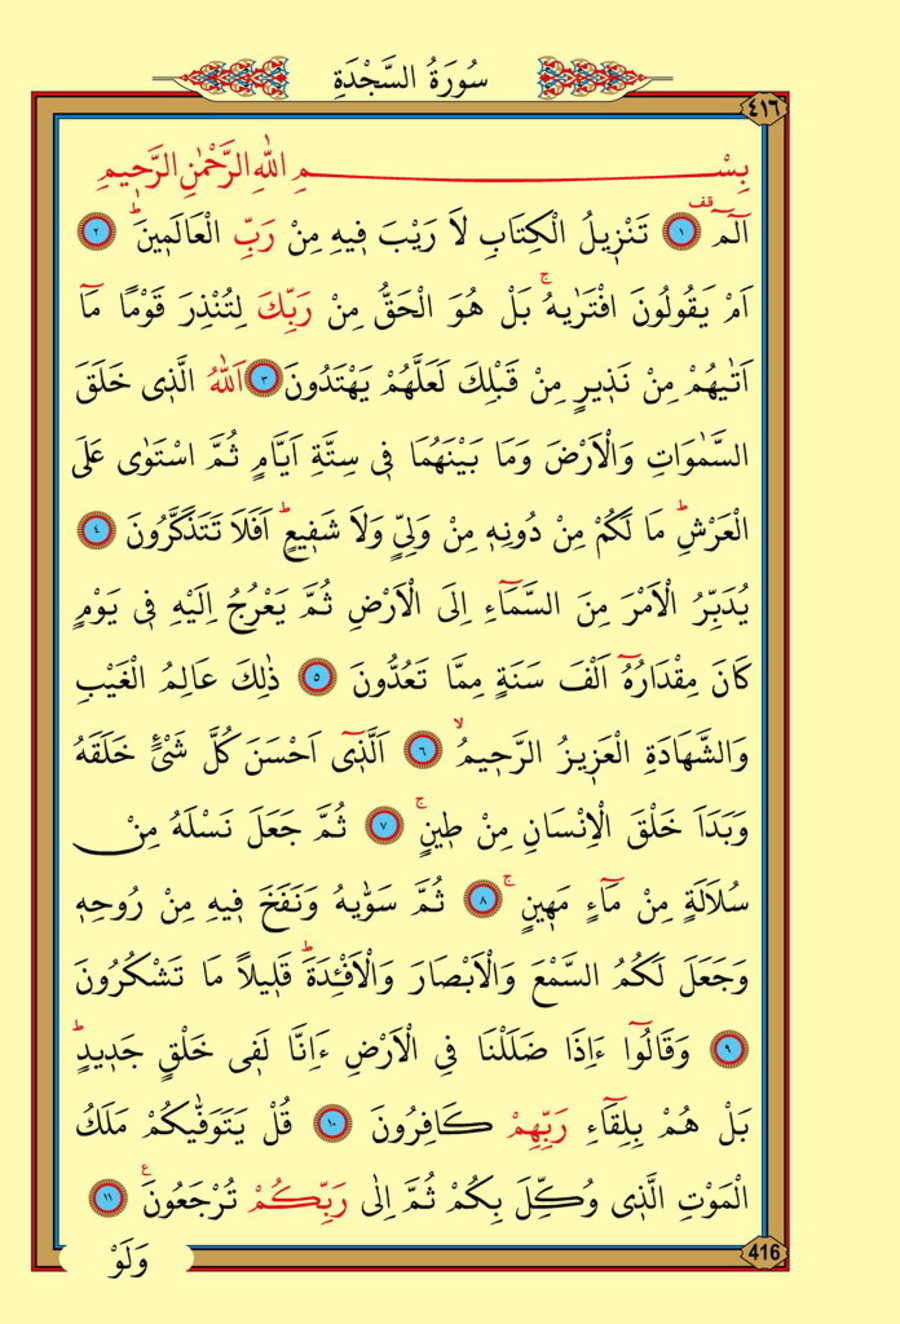 سُورَةُ السَّجْدَةِ
٤١٦
بِسْمِ اللهِ الرَّحْمٰنِ الرَّحٖيمِ
الٓمٓ ۗقف ١ تَنْزٖيلُ الْكِتَابِ لَا رَيْبَ فٖيهِ مِنْ رَبِّ الْعَالَمٖينَؕ ٢
اَمْ يَقُولُونَ افْتَرٰيهُۚ بَلْ هُوَ الْحَقُّ مِنْ رَبِّكَ لِتُنْذِرَ قَوْمًا مَٓا
اَتٰيهُمْ مِنْ نَذٖيرٍ مِنْ قَبْلِكَ لَعَلَّهُمْ يَهْتَدُونَ ٣ اَللّٰهُ الَّذٖى خَلَقَ
السَّمٰوَاتِ وَالْاَرْضَ وَمَا بَيْنَهُمَا فٖى سِتَّةِ اَيَّامٍ ثُمَّ اسْتَوٰى عَلَى
الْعَرْشِؕ مَا لَكُمْ مِنْ دُونِهٖ مِنْ وَلِيٍّ وَلَا شَفٖيعٍؕ اَفَلَا تَتَذَكَّرُونَ ٤
يُدَبِّرُ الْاَمْرَ مِنَ السَّمَٓاءِ اِلَى الْاَرْضِ ثُمَّ يَعْرُجُ اِلَيْهِ فٖى يَوْمٍ
كَانَ مِقْدَارُهُٓ اَلْفَ سَنَةٍ مِمَّا تَعُدُّونَ ٥ ذٰلِكَ عَالِمُ الْغَيْبِ
وَالشَّهَادَةِ الْعَزٖيزُ الرَّحٖيمُۙ ٦ اَلَّذٖٓى اَحْسَنَ كُلَّ شَىْءٍ خَلَقَهُ
وَبَدَاَ خَلْقَ الْاِنْسَانِ مِنْ طٖينٍۚ ٧ ثُمَّ جَعَلَ نَسْلَهُ مِنْ
سُلَالَةٍ مِنْ مَٓاءٍ مَهٖينٍۚ ٨ ثُمَّ سَوّٰيهُ وَنَفَخَ فٖيهِ مِنْ رُوحِهٖ
وَجَعَلَ لَكُمُ السَّمْعَ وَالْاَبْصَارَ وَالْاَفْـِٔدَةَؕ قَلٖيلًا مَا تَشْكُرُونَ
٩ وَقَالُٓوا ءَاِذَا ضَلَلْنَا فِى الْاَرْضِ ءَاِنَّا لَفٖى خَلْقٍ جَدٖيدٍؕ
بَلْ هُمْ بِلِقَٓاءِ رَبِّهِمْ كَافِرُونَ ١٠ قُلْ يَتَوَفّٰيكُمْ مَلَكُ
الْمَوْتِ الَّذٖى وُكِّلَ بِكُمْ ثُمَّ اِلٰى رَبِّكُمْ تُرْجَعُونَ ع ١١
416
وَلَوْ